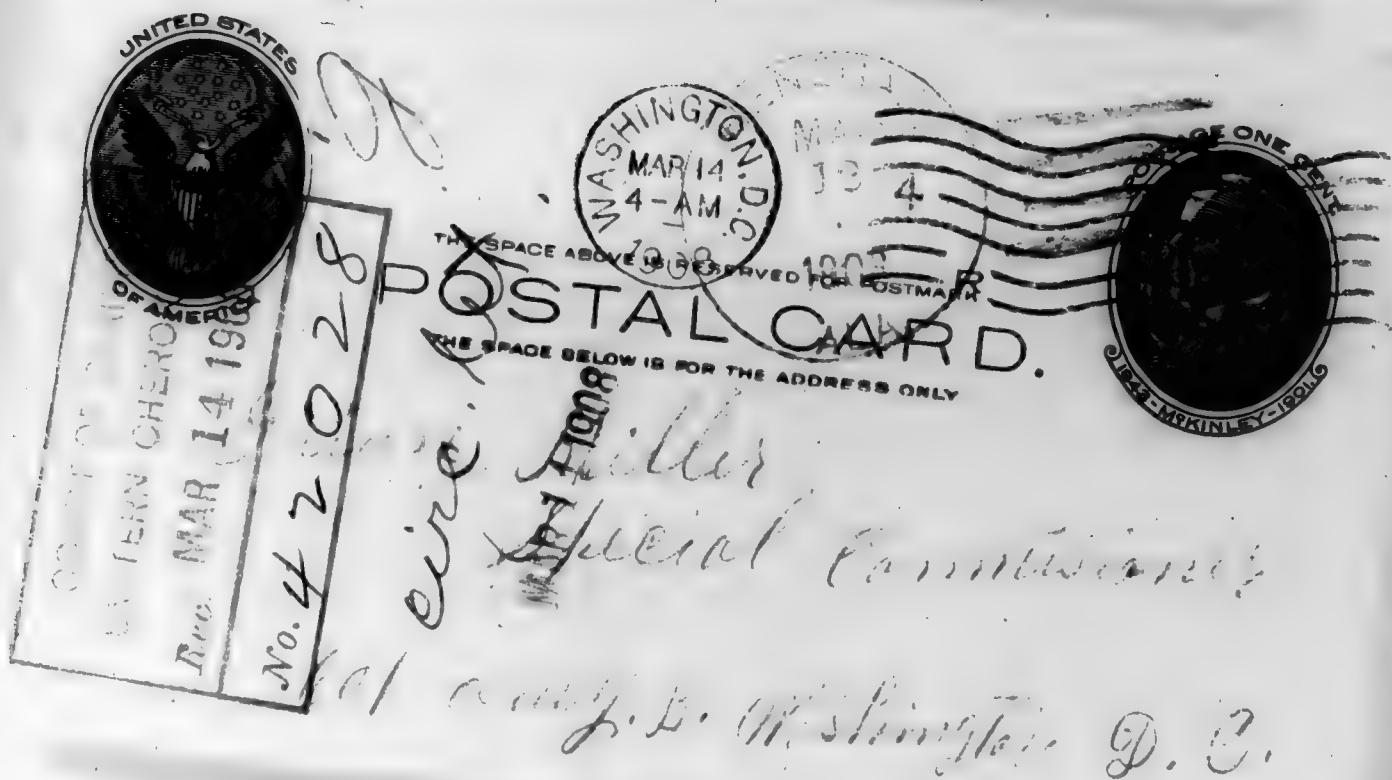 UNITED STATES
OF AMERICA
WASHINGTON, D.C.
MAR 14
4-AM
1908
POSTAGE ONE CENT
1843-McKINLEY-1901.
THE SPACE ABOVE IS RESERVED FOR POSTMARK
POSTAL CARD.
THE SPACE BELOW IS FOR THE ADDRESS ONLY
TERN CHERO
Rec. MAR 14 190
No. 42028
1908
Miller
Special Commisioner
Washington D. C.